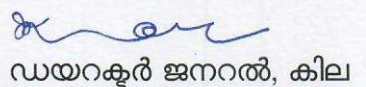 ഡയറക്ടർ ജനറൽ, കില